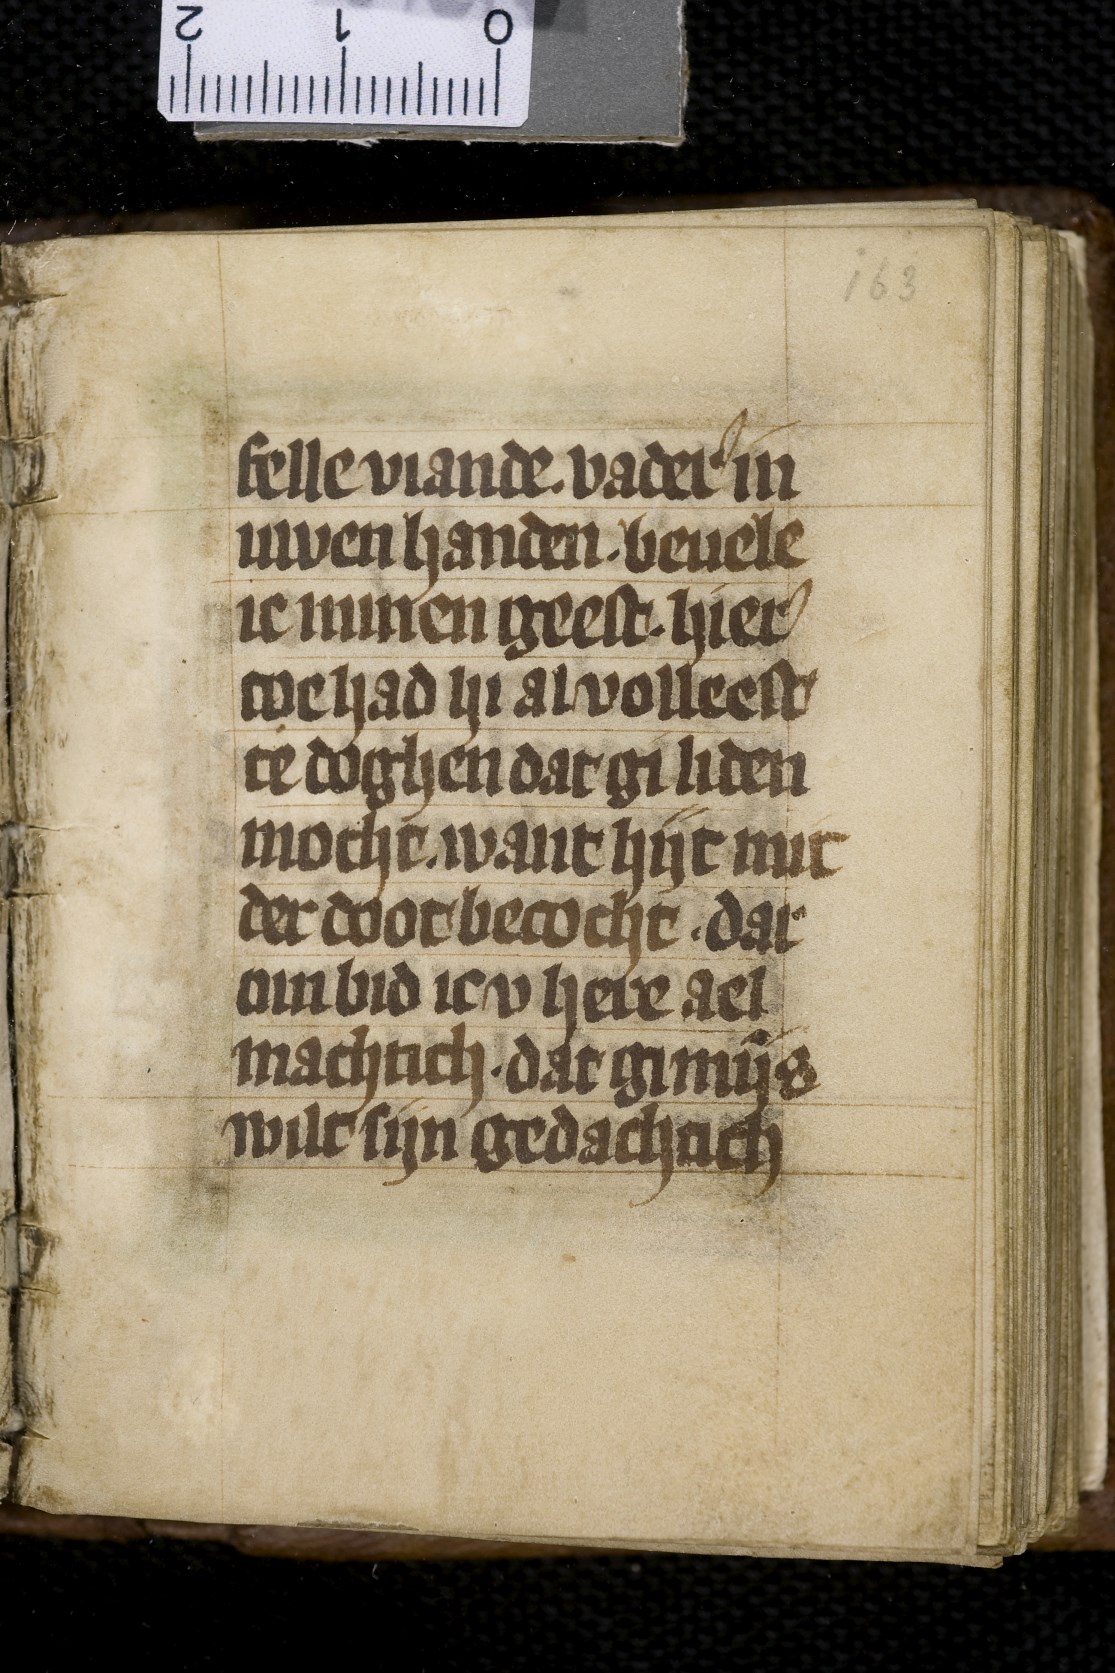 2 1 0
163
felle viande. vader in
uwen handen. beuele
ic minen geest. hier
toe had hi al volleest
te doghen dat gi liden
mocht. want hijt mit
der doot becocht. dar
om bid ic v here ael
machtich. dat gi mijs
wilt sijn gedachtich